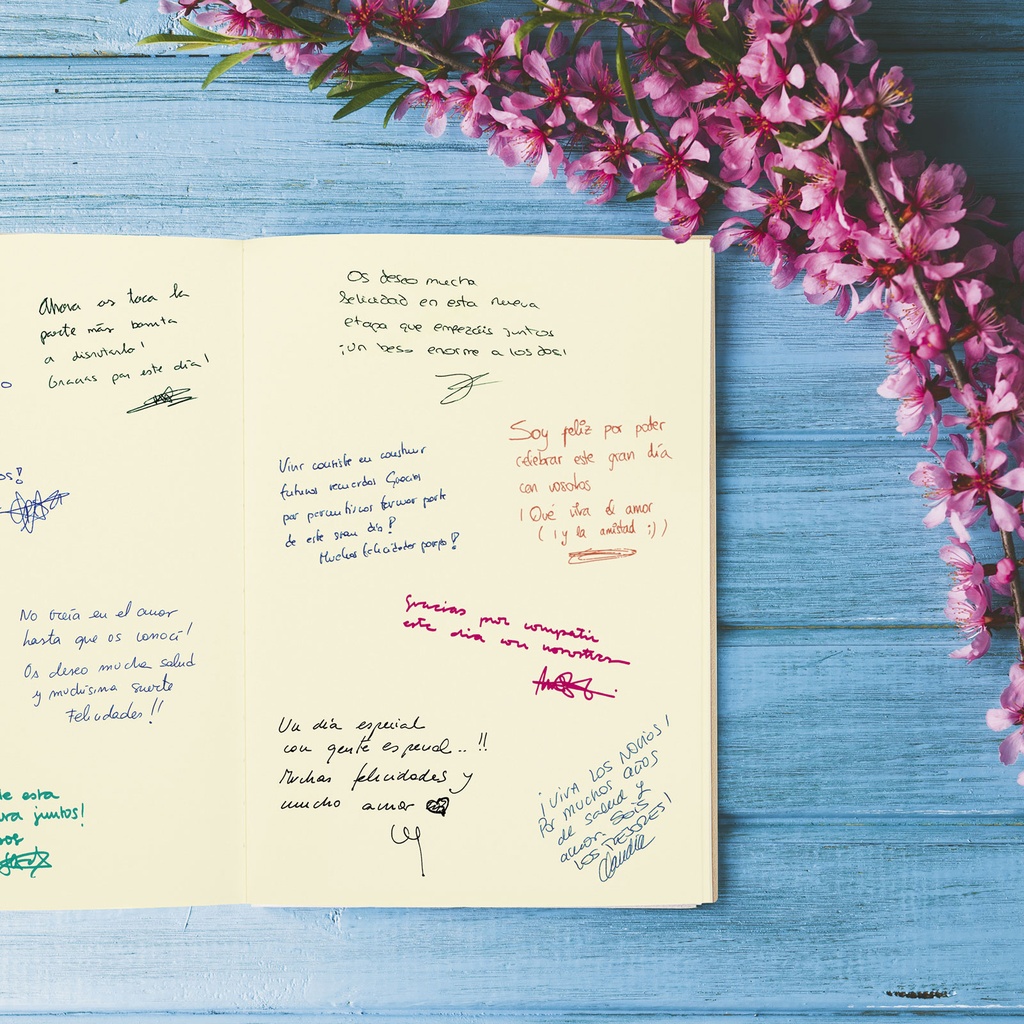 Ahora os toca la
parte más bonita
a disfrutarlo!
Gracias por este día!
os!
No creía en el amor
hasta que os conocí!
Os deseo mucha salud
y muchísima suerte
Felicidades!!
de esta
juntos!
Os deseo mucha
felicidad en esta nueva
etapa que empezáis juntos
¡Un beso enorme a los dos!
Vivir consiste en construir
futuros recuerdos Gracias
por permitirnos formar parte
de este gran día!
Muchas felicidades pareja!
Soy feliz por poder
celebrar este gran día
con vosotos
¡Qué viva el amor
(¡y la amistad ;))
Gracias por compartir
este día con nosotros
Un día especial
con gente especial..!!
Muchas felicidades y
mucho amor
¡VIVA LOS NOVIOS!
Por muchos años
de salud y
amor. SOIS
LOS MEJORES!
Claudia